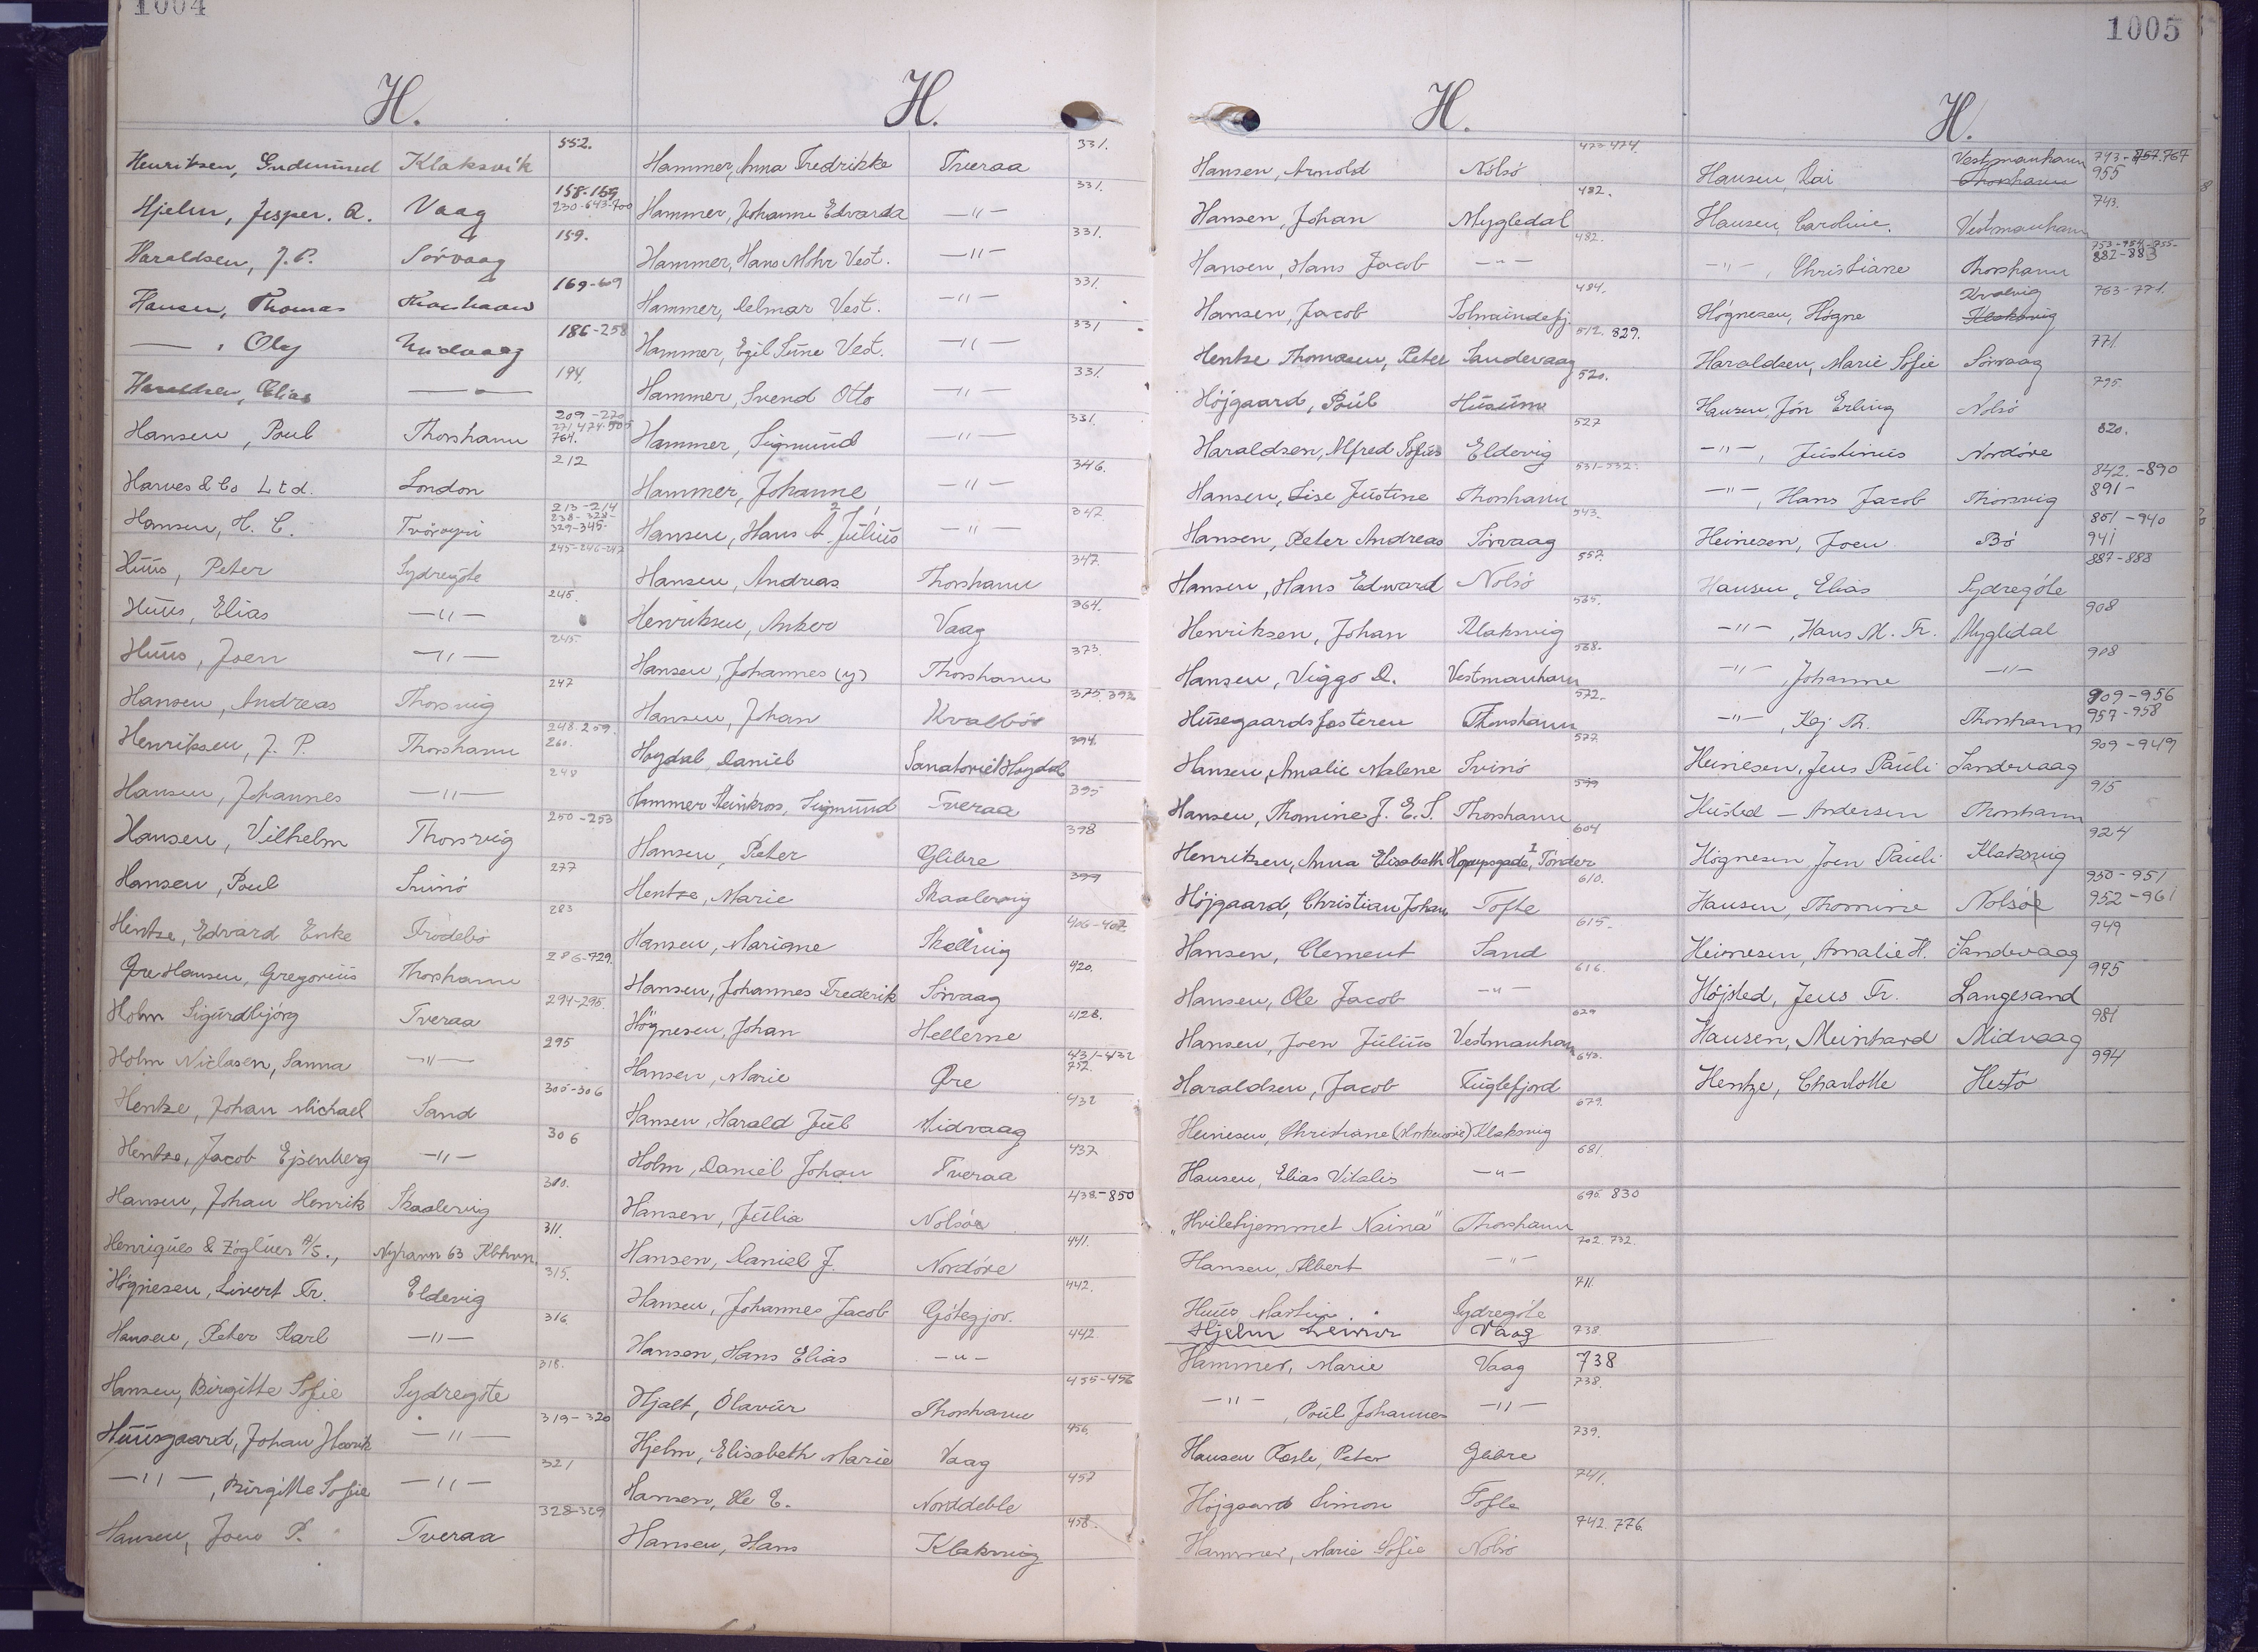 1004
H.
Henriksen, Gudmund Klaksvik 552.
Hjelm, Jesper. A. Vaag 158-159 230-643-700
Haraldsen, J. P. Sörvaag 159.
Hansen, Thomas 169-69
—, Oly Midvaag 186-258
Haraldsen, Elias — 194.
Hansen, Poul Thorshavn 209-270 271 474-505 764.
Harves & Co Ltd. London 212
Hansen, H. C. Tvöroyri 213-214 238-328- 329-345-
Huus, Peter Sydregöte 245-246-247
Huus, Elias —"— 245.
Huus, Joen —"— 245-
Hansen, Andreas Thorsvig 247
Henriksen, J. P. Thorshavn 248.259. 260.
Hansen, Johannes —"— 248
Hansen, Vilhelm Thorsvig 250-253
Hansen, Poul Svinö 277
Hentze, Edvard Enke Frodebö 283
Öre Hansen, Gregorius Thorshavn 286-729.
Holm Sigurdbjörg Tveraa 294-295.
Holm Niclasen, Sanna —"— 295
Hentze, Johan Michael Sand 305-306
Hentze, Jacob Ejsenberg —"— 306
Hansen, Johan Henrik Skaalevig 310.
Henriques & Zöglner A/S., Nyhavn 63 Kbhvn. 311.
Högnesen, Sivert Fr. Eldevig 315.
Hansen, Peter Karl —"— 316.
Hansen, Birgitte Sofie Sydregöte 318.
Huusgaard, Johan Henrik —"— 319-320
—"—, Birgitte Sofie —"— 321
Hansen, Joen P. Tveraa 328-329
H.
Hammer, Anna Fredrikke Tveraa 331.
Hammer, Johanne Edvarda —"— 331.
Hammer, Hans Mohr Vest. —"— 331.
Hammer, Delmar Vest. —"— 331.
Hammer, Egil Sune Vest. —"— 331
Hammer, Svend Otto —"— 331.
Hammer, Sigmund —"— 331.
Hammer, Johanne —"— 346.
Hansen, Hans A. Julius —"— 347.
Hansen, Andreas Thorshavn 347.
Henriksen, Anker Vaag 364.
Hansen, Johannes (y) Thorshavn 373.
Hansen, Johan Kvalbö 375.392
Hoydal, Daniel Sanatoriet Hoydal 394.
Hammer Steinkross, Sigmund Tveraa 395
Hansen, Peter Glibre 398
Hentze, Marie Skaalevig 399
Hansen, Mariane Skellvig 406-407
Hansen, Johannes Frederik Sörvaag 420.
Högnesen, Johan Hellerne 428.
Hansen, Marie Öre 431-432 752.
Hansen, Harald Juul Midvaag 432
Holm, Daniel Johan Tveraa 437
Hansen, Julia Nolsöe 438-850
Hansen, Daniel J. Nordöre 441.
Hansen, Johannes Jacob Götegjov. 442.
Hansen, Hans Elias —"— 442
Hjalt, Ólavur Thorshavn 455-456
Hjelm, Elisabeth Marie Vaag 456.
Hansen, Ole E. Norddeble 457
Hansen, Hans Klaksvig 458.
1005
H.
Hansen, Arnold Nólsö 473-474.
Hansen, Johan Mygledal 482.
Hansen, Hans Jacob —"— 482.
Hansen, Jacob Solmundefj. 484.
Hentze Thomasen, Peter Sandevaag 512. 829.
Höjgaard, Poul Husum 520.
Haraldsen, Alfred Sofus Eldevig 527
Hansen, Lise Justine Thorshavn 531-532.
Hansen, Peter Andreas Sörvaag 543.
Hansen, Hans Edward Nolsö 557.
Henriksen, Johan Klaksvig 565.
Hansen, Viggo D. Vestmanhavn 568.
Husegaardsfosteren Thorshavn 572.
Hansen, Amalie Malene Svinö 577.
Hansen, Thomine J. E. S. Thorshavn 579
Henriksen, Anna Elisabeth Tönder 604
Höjgaard, Christian Johan Tofte 610.
Hansen, Clement Sand 615.
Hansen, Ole Jacob —"— 616.
Hansen, Joen Julius Vestmanhavn 629
Haraldsen, Jacob Fuglefjord 643.
Heinesen, Christiane Klaksvig 679.
Hansen, Elias Vitalis —"— 681.
"Hvilehjemmet Naina" Thorshavn 695. 830
Hansen, Albert —"— 702. 732.
Huus Martin Sydregöte 711.
Hjelm Leivur Vaag 738.
Hammer, Marie Vaag 738
—"—, Poul Johannes —"— 738.
Hansen Kosli, Peter Glibre 739.
Höjgaard Simon Tofte 741.
Hammer, Marie Sofie Nolsö 742. 776.
H.
Hansen, Kai Vestmanhavn Thorshavn 743-757.767 955
Hansen, Caroline. Vestmanhavn 743.
—"—, Christiane Thorshavn 753-954-755- 882-883
Högnesen, Högne Kvalvig Klaksvig 763-771.
Haraldsen, Marie Sofie Sörvaag 771
Hansen, Jón Erling Nolsö 795.
—"—, Justinus Nordöre 820.
—"—, Hans Jacob Thorsvig 842.-890 891-
Heinesen, Joen Bö 851-940 941
Hansen, Elias Sydregöte 887-888
—"—, Hans M. Fr. Mygledal 908
—"—, Johanne —"— 908
—"—, Kaj Th. Thorshavn 909-956 957-958
Heinesen, Jens Pauli Sandevaag 909-949
Husted - Andersen Thorshavn 915
Högnesen Joen Pauli Klaksvig 924
Hansen, Thomine Nolsöe 950-951 952-961
Heinesen, Amalie H. Sandevaag 949
Höjsted, Jens Fr. Langesand 975
Hansen, Meinhard Midvaag 981
Hentze, Charlotte Hestö 994